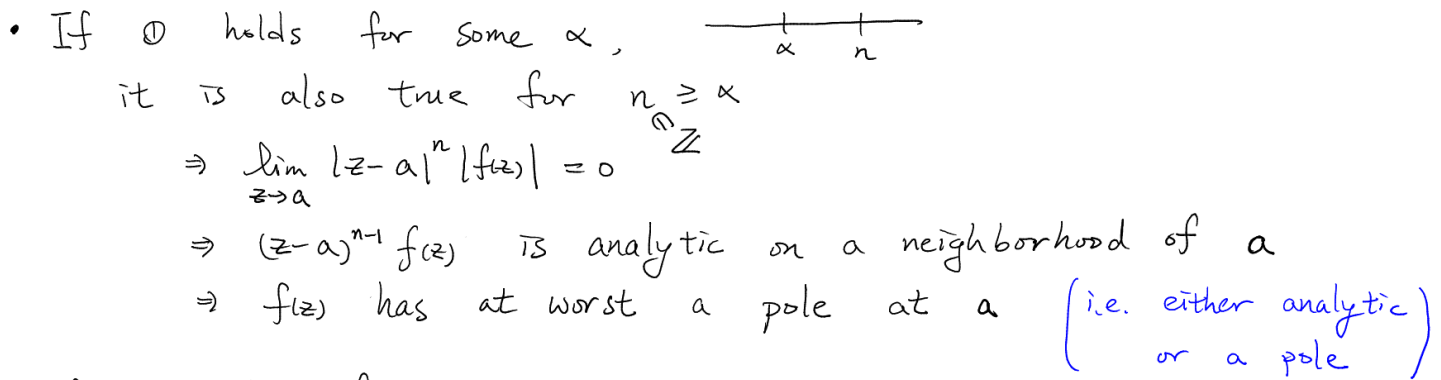 • If ① holds for some α,
α n
it is also true for n ≥ α
∈ ℤ
⇒ lim |z-a|ⁿ |f(z)| = 0
z→a
⇒ (z-a)ⁿ⁻¹ f(z) is analytic on a neighborhood of a
⇒ f(z) has at worst a pole at a (i.e. either analytic
or a pole)